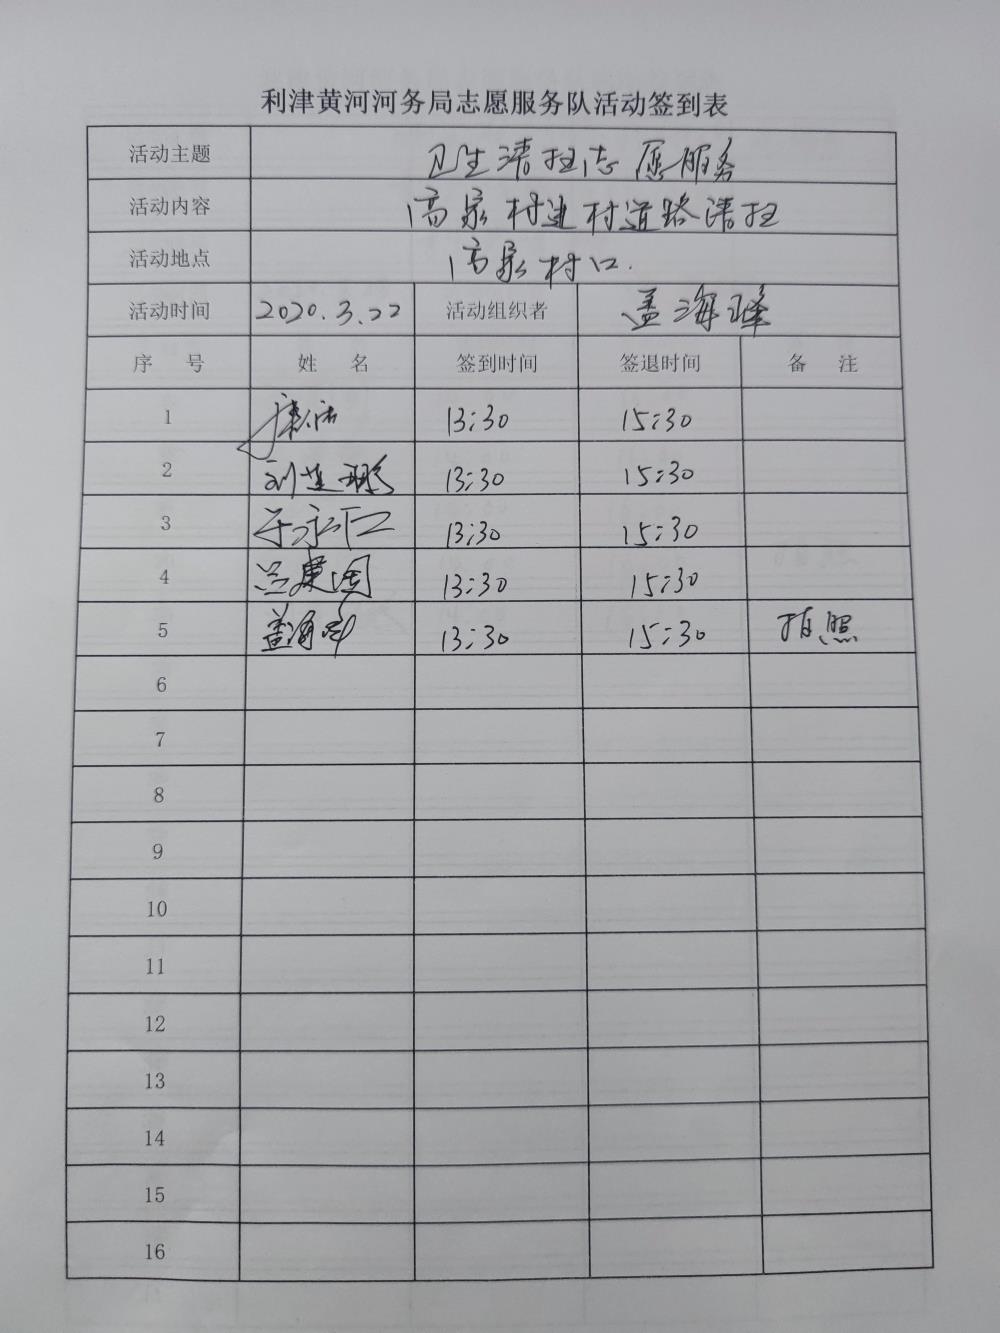 利津黄河河务局志愿服务队活动签到表
活动主题 卫生清扫志愿服务
活动内容 高家村进村道路清扫
活动地点 高家村口.
活动时间 2020.3.22 活动组织者 盖海峰
序 号 姓 名 签到时间 签退时间 备 注
1 13:30 15:30
2 刘建 13:30 15:30
3 于永仁 13:30 15:30
4 吕建国 13:30 15:30
5 盖海峰 13:30 15:30 拍照
6
7
8
9
10
11
12
13
14
15
16